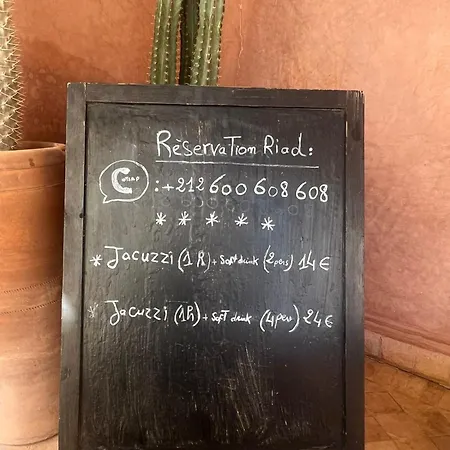 Rèservation Riad:
: +212 600 608 608
* * * * *
* Jacuzzi (1 R) + Soft drink (2 pers) 14 €
* Jacuzzi (1R) + soft drink (4 pers) 24 €